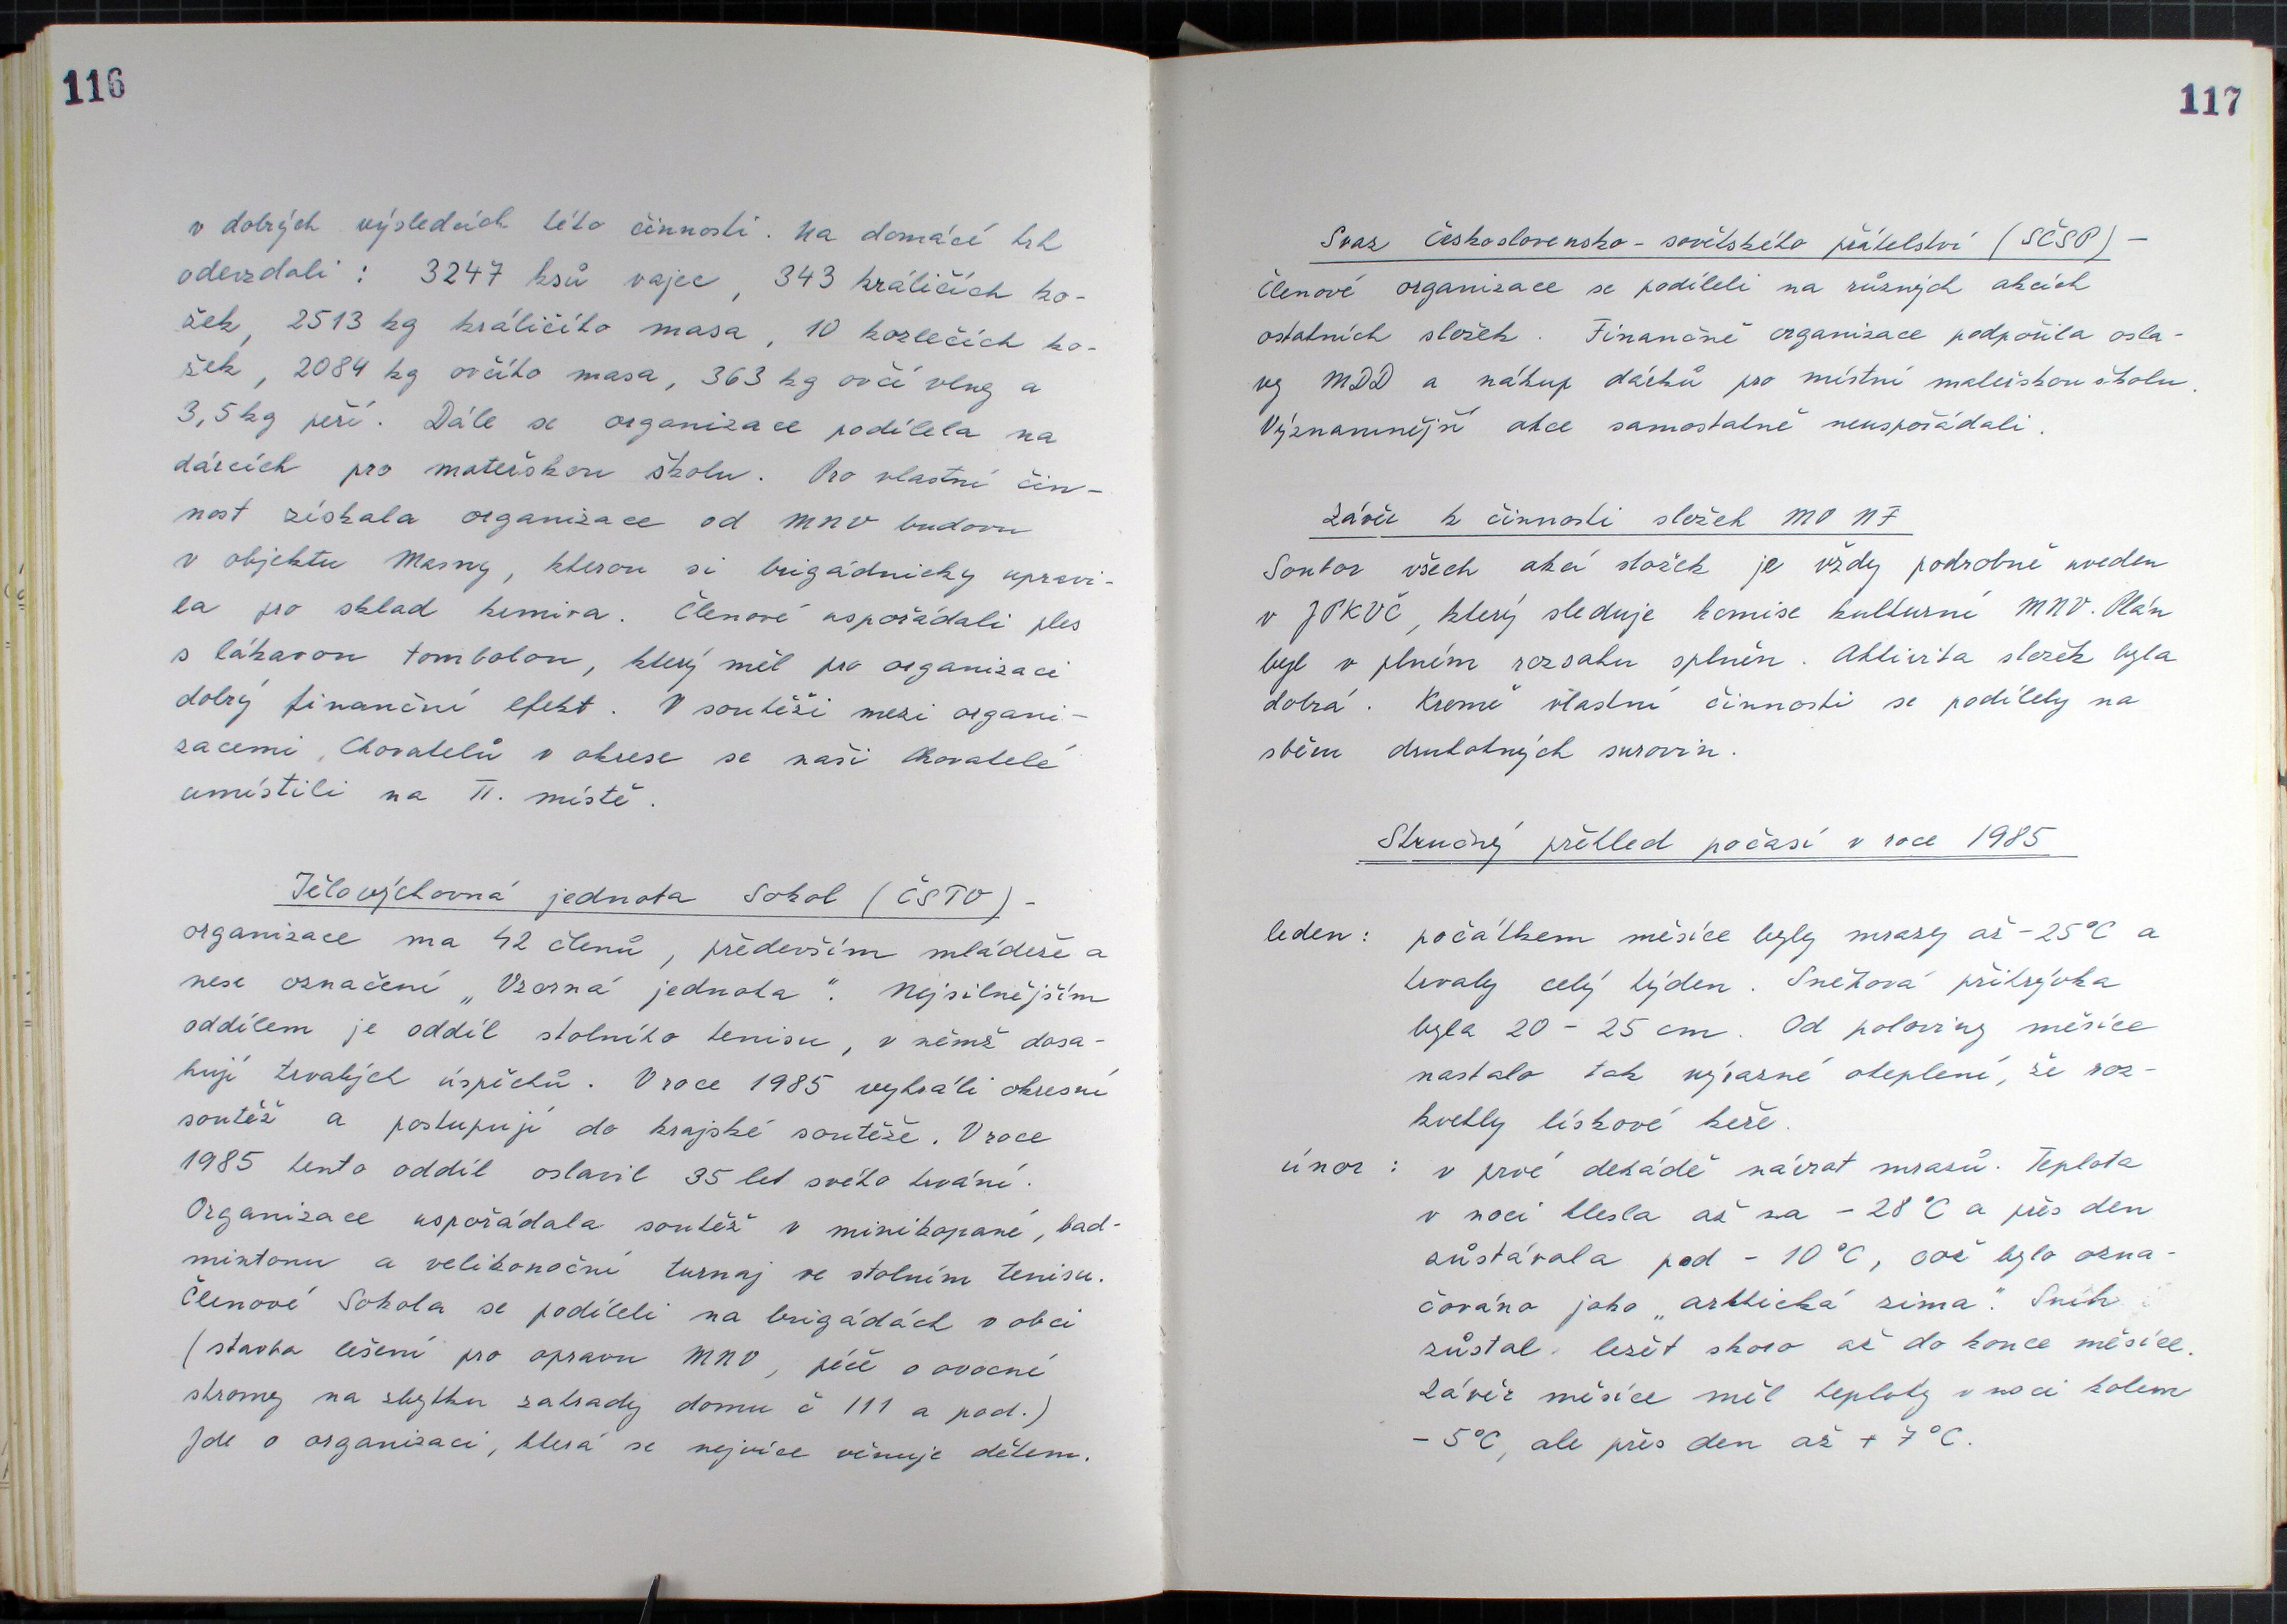 116
v dobrých výsledcích této činnosti. Na domácí trh
odevzdali : 3247 ksů vajec, 343 králičích ko-
žek, 2513 kg králičího masa, 10 kozlečích ko-
žek, 2084 kg ovčího masa, 363 kg ovčí vlny a
3,5 kg peří. Dále se organizace podílela na
dárcích pro mateřskou školu. Pro vlastní čin-
nost získala organizace od MNV budovu
v objektu Masny, kterou si brigádnicky upravi-
la pro sklad krmiva. Členové uspořádali ples
s lákavou tombolou, který měl pro organizaci
dobrý finanční efekt. V soutěži mezi organi-
zacemi Chovatelů v okrese se naši Chovatelé
umístili na II. místě.
Tělovýchovná jednota Sokol (ČSTV) -
organizace ma 42 členů, především mládeže a
nese označení „Vzorná jednota“. Nejsilnějším
oddílem je oddíl stolního tenisu, v němž dosa-
hují trvalých úspěchů. V roce 1985 vyhráli okresní
soutěž a postupují do krajské soutěže. V roce
1985 tento oddíl oslavil 35 let svého trvání.
Organizace uspořádala soutěž v minikopané, bad-
mintonu a velikonoční turnaj ve stolním tenisu.
Členové Sokola se podíleli na brigádách v obci
(stavba lešení pro opravu MNV, péče o ovocné
stromy na zbytku zahrady domu č 111 a pod.)
Jde o organizaci, která se nejvíce věnuje dětem.
117
Svaz Československo-sovětského přátelství (SČSP) -
Členové organizace se podíleli na různých akcích
ostatních složek. Finančně organizace podpořila osla-
vy MDD a nákup dárků pro místní mateřskou školu.
Významnější akce samostatně neuspořádali.
Závěr k činnosti složek MV NF
Soubor všech akcí složek je vždy podrobně uveden
v JPKVČ, který sleduje komise kulturní MNV. Plán
byl v plném rozsahu splněn. Aktivita složek byla
dobrá. Kromě vlastní činnosti se podílely na
sběru druhotných surovin.
Stručný přehled počasí v roce 1985
leden : počátkem měsíce byly mrazy až -25°C a
trvaly celý týden. Sněhová přikrývka
byla 20 - 25 cm. Od poloviny měsíce
nastalo tak výrazné oteplení, že roz-
kvetly lískové keře.
únor : v prvé dekádě návrat mrazů. Teplota
v noci klesla až na -28°C a přes den
zůstávala pod -10°C, což bylo ozna-
čováno jako „arktická zima“. Sníh
zůstal ležet skoro až do konce měsíce.
Závěr měsíce měl teploty v noci kolem
-5°C, ale přes den až +7°C.